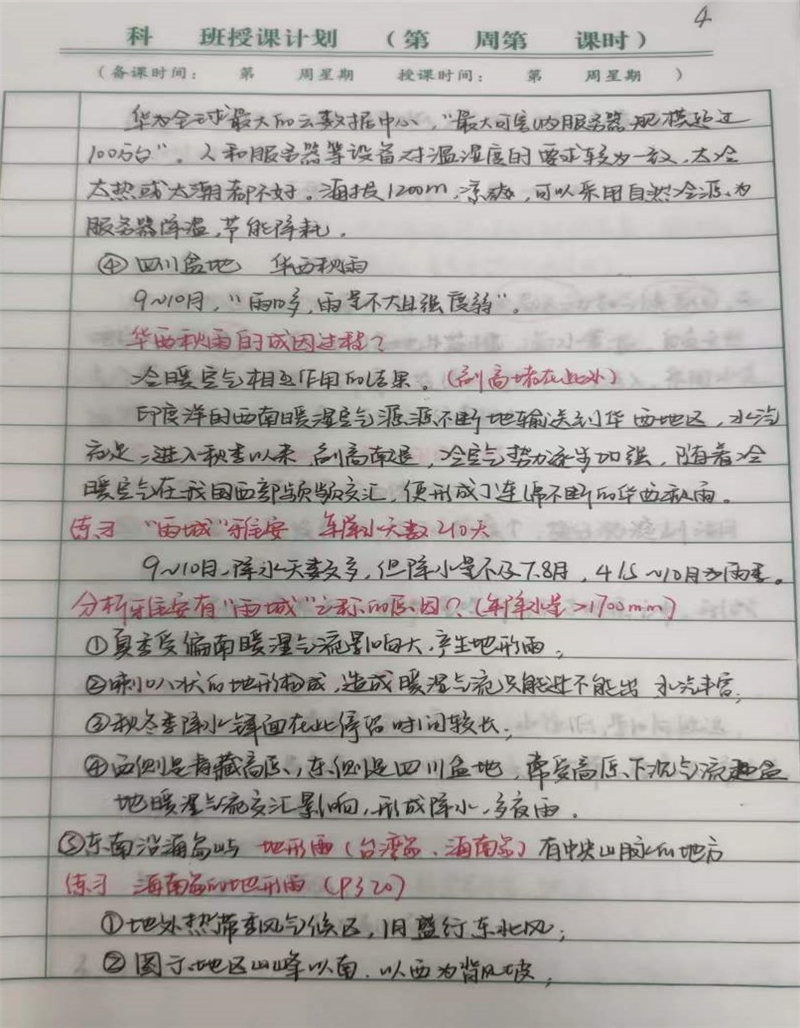 4
科 班授课计划 (第 周第 课时)
(备课时间: 第 周星期 授课时间: 第 周星期 )
华为全球最大的云数据中心,"最大可容纳服务器规模超过
100万台"。人和服务器等设备对温湿度的要求较为一致,太冷
太热或太潮都不好。海拔1200m,凉爽,可以采用自然冷源为
服务器降温,节能降耗。
④四川盆地 华西秋雨
9~10月,"雨日多,雨量不大且强度弱"。
华西秋雨的成因过程?
冷暖空气相互作用的结果。(副高堵在此外)
印度洋的西南暖湿空气源源不断地输送到华西地区,水汽
充足;进入秋季以来,副高南退,冷空气势力逐步加强,随着冷
暖空气在我国西部频频交汇,便形成了连绵不断的华西秋雨。
练习 "雨城"雅安 年降水天数210天
9~10月降水天数多,但降水量不及7.8月,4/5~10月为雨季。
分析雅安有"雨城"之称的原因?(年降水量>1700mm)
①夏季受偏南暖湿气流影响大,产生地形雨;
②喇叭状的地形构成,造成暖湿气流只能进不能出 水汽丰富;
③秋冬季降水锋面在此停留时间较长;
④西侧是青藏高原,东侧是四川盆地,常受高原下沉气流 盆
地暖湿气流交汇影响,形成降水,多夜雨。
⑤东南沿海岛屿 地形雨(台湾岛、海南岛)有中央山脉的地方
练习 海南岛的地形雨(P320)
①地处热带季风气候区,1月盛行东北风;
②图示地区山峰以南、以西为背风坡;